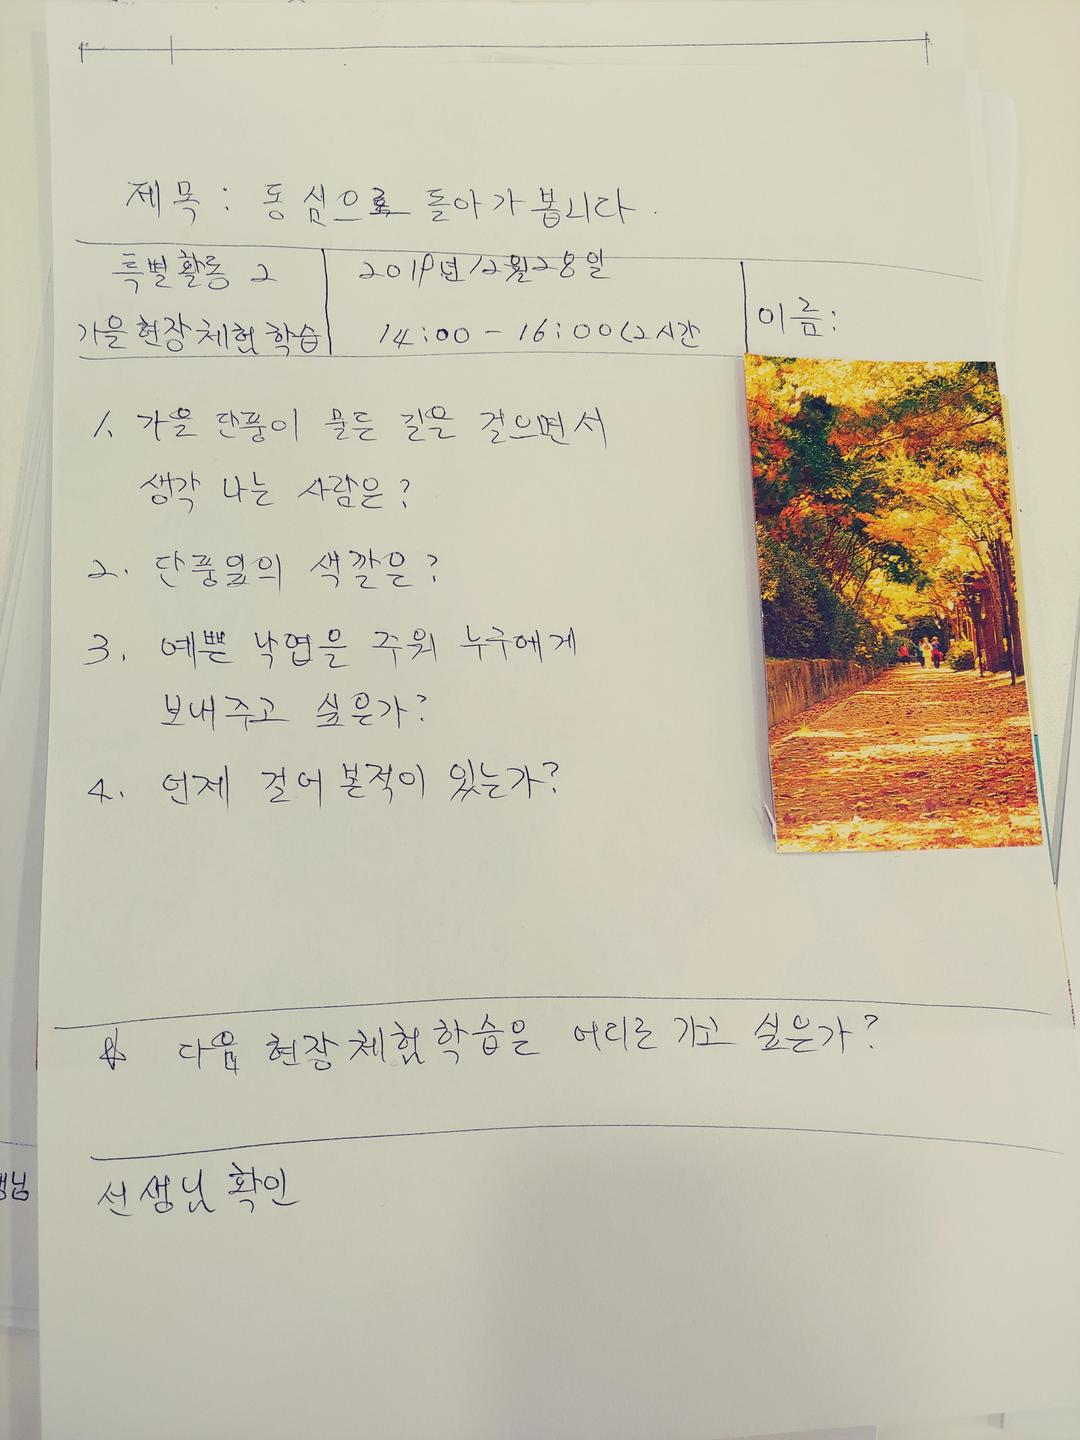 제목 : 동심으로 돌아가봅니다.
특별활동 2
2019년 12월 28일
가을현장체험학습
14:00 - 16:00 (2시간
이름:
1. 가을 단풍이 물든 길을 걸으면서
생각 나는 사람은?
2. 단풍잎의 색깔은?
3. 예쁜 낙엽을 주워 누구에게
보내주고 싶은가?
4. 언제 걸어본적이 있는가?
다음 현장체험학습은 어디로 가고 싶은가?
선생님 확인